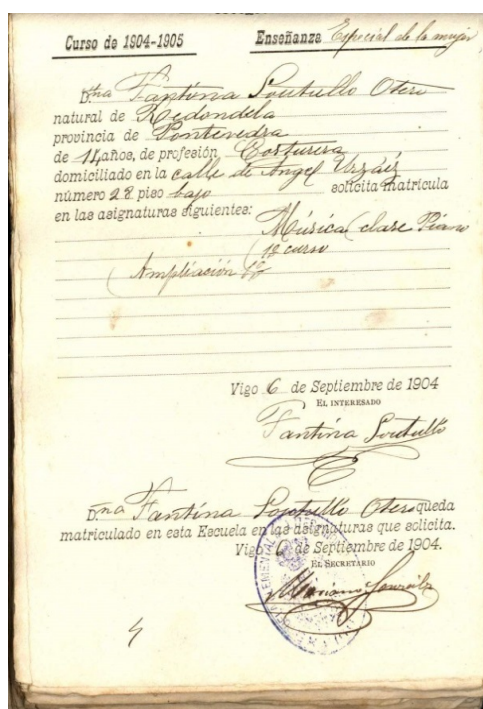 Curso de 1904-1905 Enseñanza Especial de la mujer
Dña Fantina Soutullo Otero
natural de Redondela
provincia de Pontevedra
de 14 años, de profesión Costurera
domiciliado en la calle de Angel Urzáiz
número 28 piso bajo solicita matrícula
en las asignaturas siguientes:
Música (clase Piano
1er curso
Ampliación
Vigo 6 de Septiembre de 1904
EL INTERESADO
Fantina Soutullo
Dña Fantina Soutullo Otero queda
matriculado en esta Escuela en las asignaturas que solicita.
Vigo 6 de Septiembre de 1904.
EL SECRETARIO
Mariano González
4